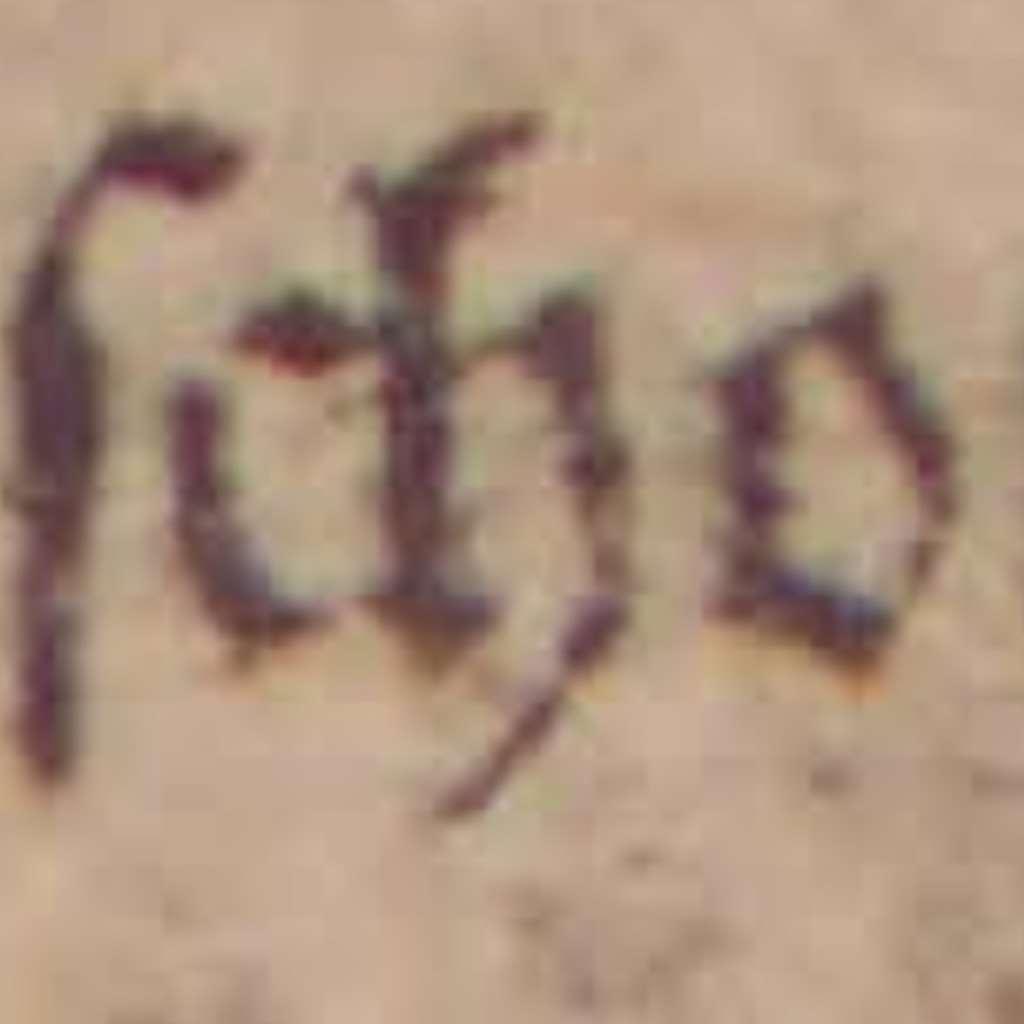 ſcho